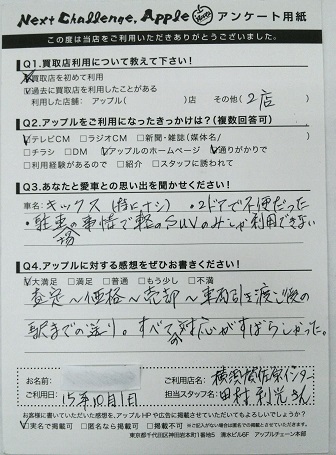 Next Challenge, Apple アンケート用紙
この度は当店をご利用いただきありがとうございました。
Q1.買取店利用について教えて下さい!
買取店を初めて利用
過去に買取店を利用したことがある
利用した店舗: アップル( )店 その他( 2店 )
Q2.アップルをご利用になったきっかけは?(複数回答可)
テレビCM □ラジオCM □新聞・雑誌(媒体名/ )
□チラシ □DM アップルのホームページ 通りがかりで
□利用経験があるので □紹介 □スタッフに誘われて
Q3.あなたと愛車との思い出を聞かせください!
車名: キックス (特にナシ) ・2ドアで不便だった
・駐車場の事情で軽のSUVのみしか利用できない
Q4.アップルに対する感想をぜひお書きください!
大満足 □満足 □普通 □もう少し □不満
査定〜価格〜売却〜車両引き渡し後の
駅までの送り。すべての対応がすばらしかった。
お名前:
ご利用店名: 横浜
ご利用日: 15年10月1日
担当スタッフ名: 田村 さん
お客様に書いていただいた感想を、アップルHPや広告に掲載させていただいてもよろしいでしょうか?
実名で掲載可 □匿名なら掲載可 □掲載不可
東京都千代田区神田岩本町1番5 清水ビル6F アップルチェーン本部